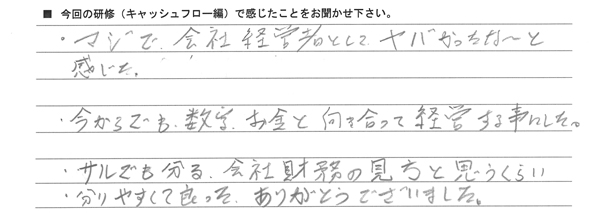 ■ 今回の研修（キャッシュフロー編）で感じたことをお聞かせ下さい。
・マジで、会社経営者として、ヤバかったな〜と
感じた。
・今からでも、数字、お金と向き合って経営する事にした。
・サルでも分る、会社財務の見方と思うくらい
・分りやすくて良った、ありがとうございました。